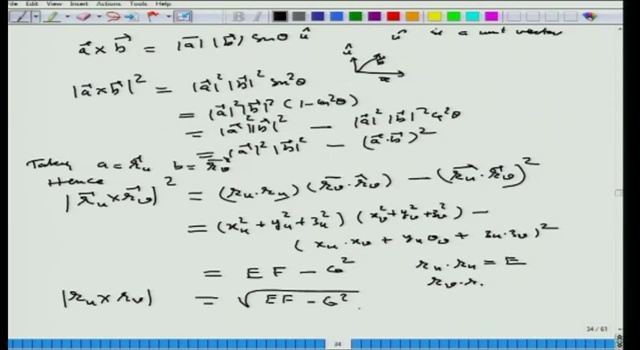 File Edit View Insert Actions Tools Help
a⃗ × b⃗ = |a⃗| |b⃗| sinθ û      û is a unit vector
|a⃗×b⃗|² = |a⃗|² |b⃗|² sin²θ
= |a⃗|² |b⃗|² (1 - cos²θ)
= |a⃗|² |b⃗|² - |a⃗|² |b⃗|² cos²θ
= |a⃗|² |b⃗|² - (a⃗·b⃗)²
Taking a = r⃗u b = r⃗v
Hence
|r⃗u × r⃗v|² = (ru·ru) (r⃗v·r⃗v) - (r⃗u·r⃗v)²
= (xu² + yu² + zu²) (xv² + yv² + zv²) -
(xu·xv + yu yv + zu·zv)²
= EF - G²      ru·ru = E
rv·r.
|ru × rv| = √EF - G².
34 / 61
34